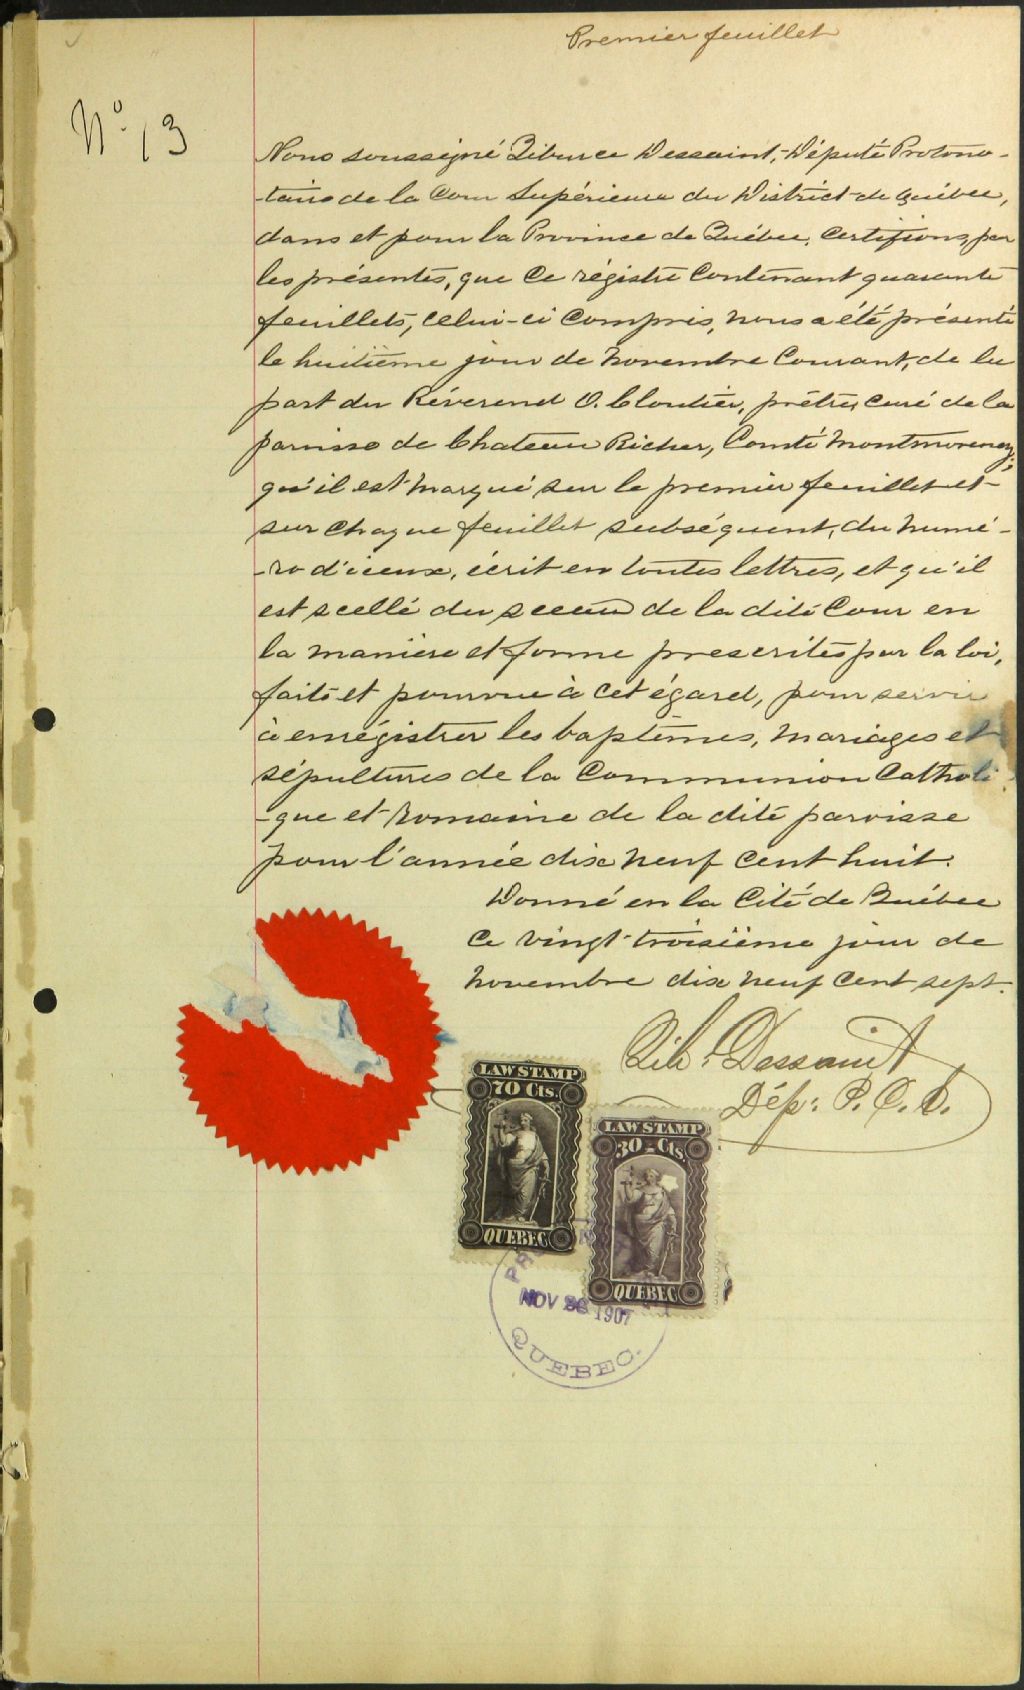 Premier feuillet
No. 13
Nous soussigné Tiburce Dessaint, Député Protono-
-taire de la Cour Supérieure du District de Québec,
dans et pour la Province de Québec, certifions, par
les présentes, que ce régistre contenant quarante
feuillets, celui-ci compris, nous a été présenté
le huitième jour de novembre courant, de la
part du Révérend O. Cloutier, prêtre, curé de la
paroisse de Chateau Richer, Comté Montmorency;
qu'il est marqué sur le premier feuillet et
sur chaque feuillet subséquent, du numé-
-ro d'iceux, écrit en toutes lettres, et qu'il
est scellé du sceau de la dite Cour en
la manière et forme prescrites par la loi,
faite et pourvue à cet égard, pour servir
à enrégistrer les baptêmes, mariages et
sépultures de la Communion Catholi
-que et romaine de la dite paroisse
pour l'année dix neuf cent huit.
Donné en la Cité de Québec
ce vingt-troisième jour de
novembre dix neuf cent sept.
Tib. Dessaint
Dép: P. C. S.
LAW STAMP
70 Cts.
QUEBEC
LAW STAMP
30 Cts.
QUEBEC
NOV 1907
QUEBEC.